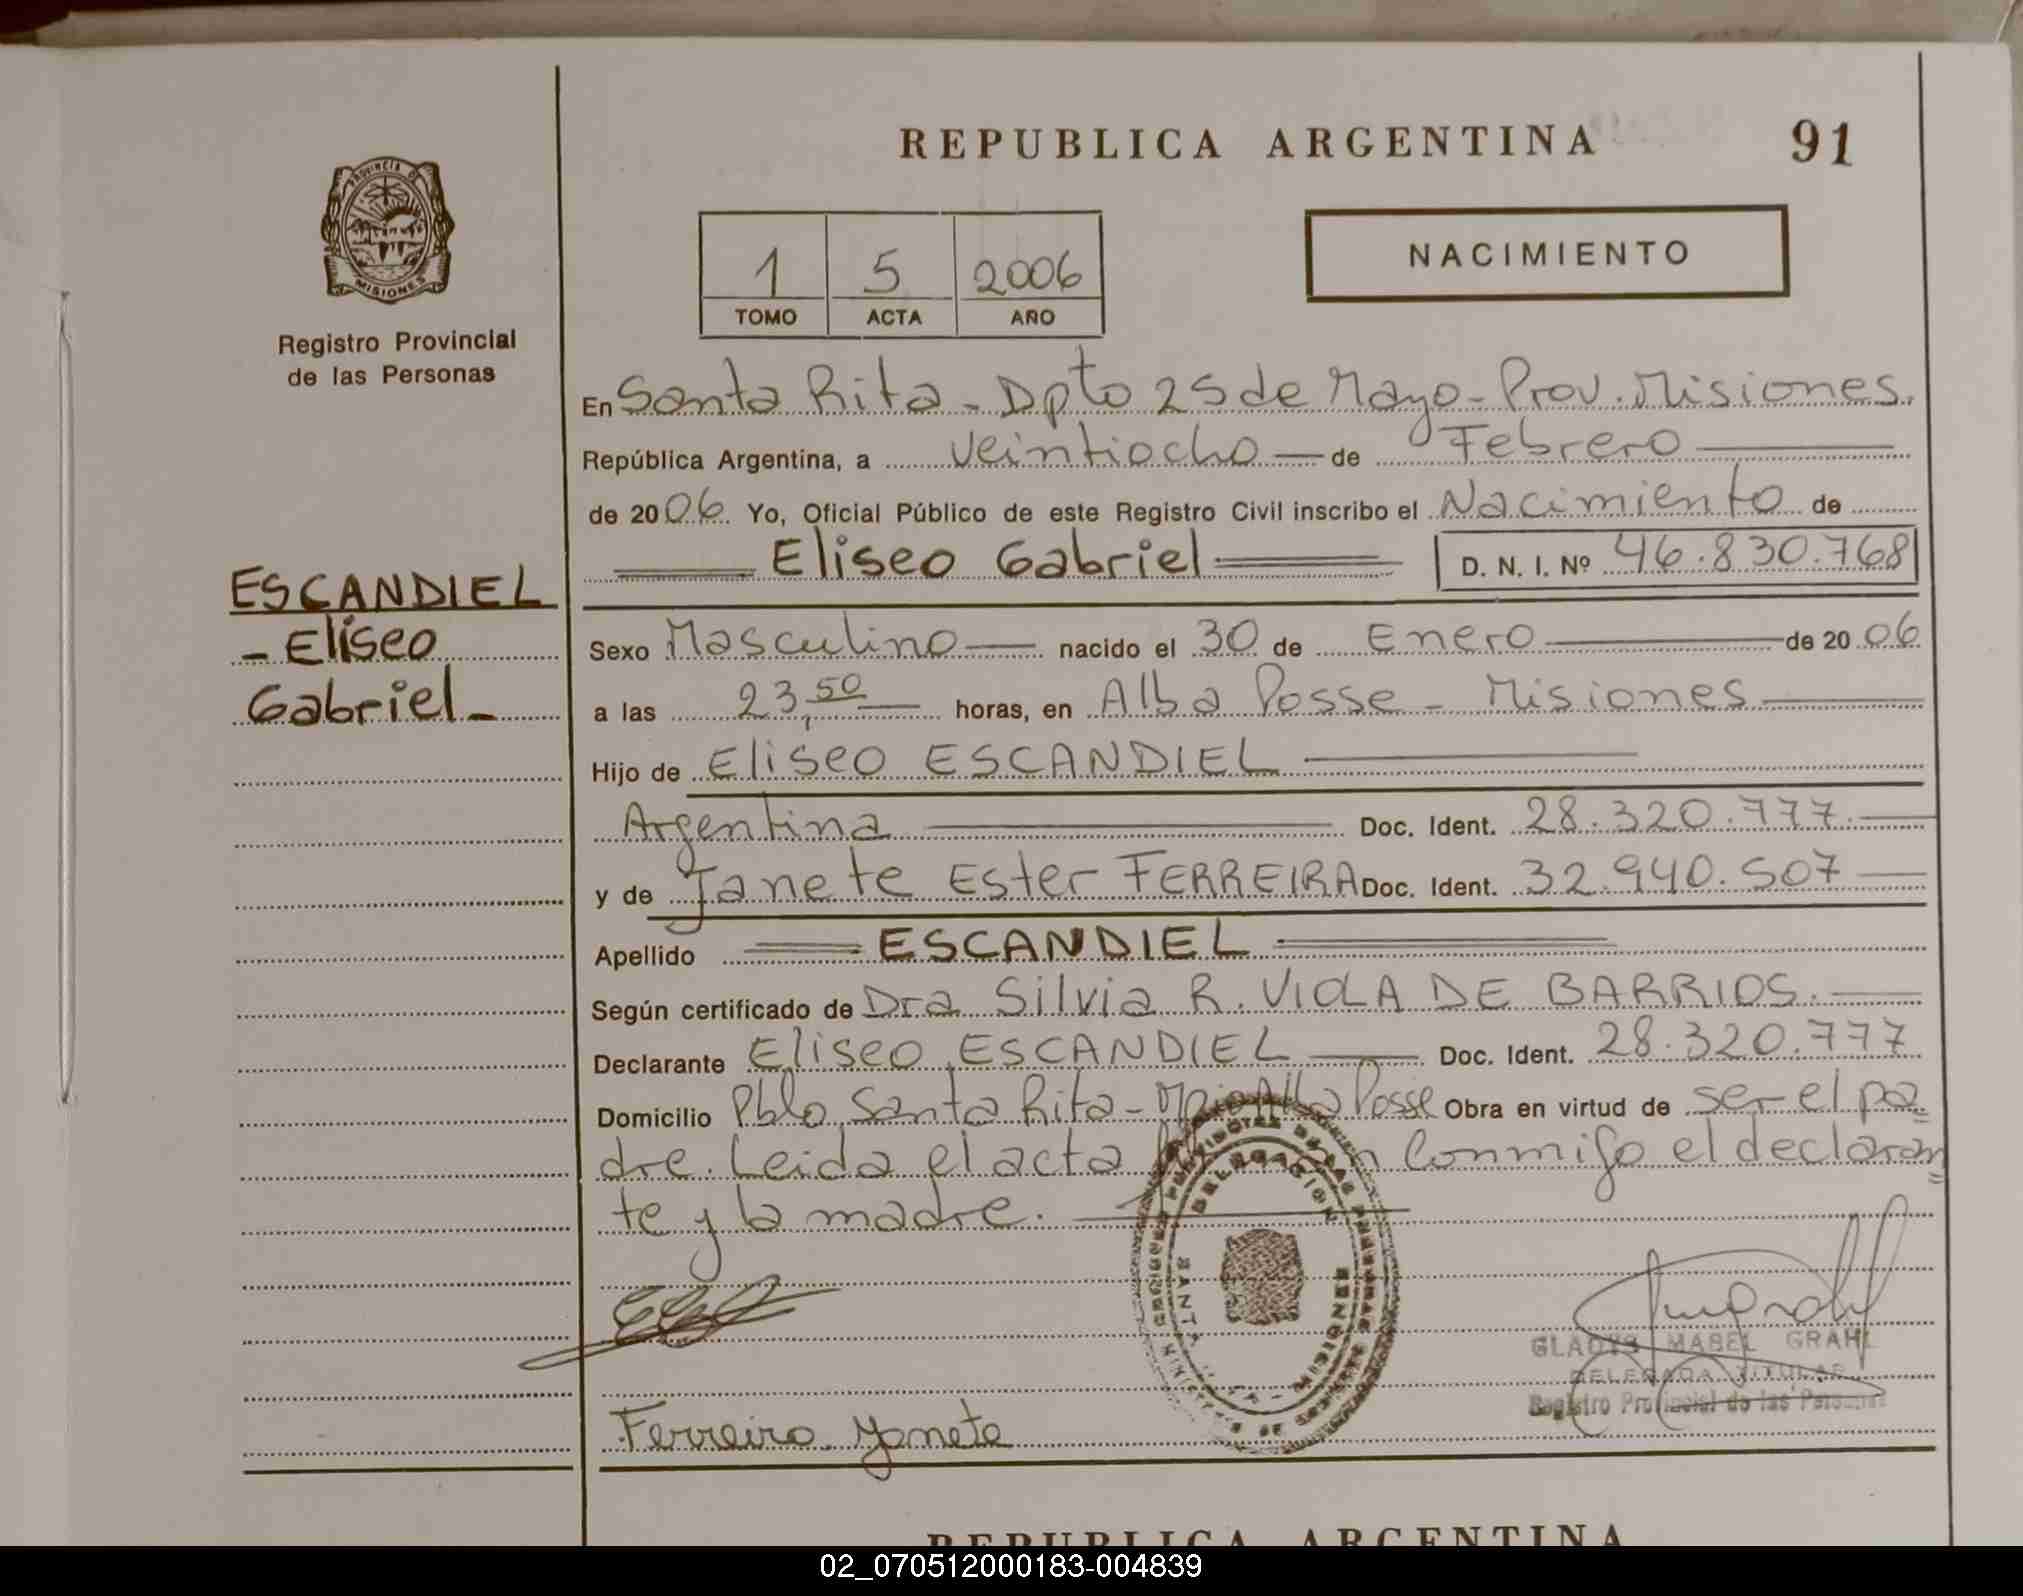 REPUBLICA ARGENTINA
91
PROVINCIA DE
MISIONES
Registro Provincial
de las Personas
1 5 2006
TOMO ACTA AÑO
NACIMIENTO
En Santa Rita - Dpto 25 de Mayo - Prov. Misiones.
República Argentina, a veintiocho — de Febrero —
de 2006. Yo, Oficial Público de este Registro Civil inscribo el Nacimiento de
Eliseo Gabriel
D. N. I. Nº 46.830.768
ESCANDIEL
- Eliseo
Gabriel -
Sexo Masculino — nacido el 30 de Enero — de 2006
a las 23,50 — horas, en Alba Posse - Misiones —
Hijo de Eliseo ESCANDIEL —
Argentina — Doc. Ident. 28.320.777. —
y de Janete Ester FERREIRA Doc. Ident. 32.940.507 —
Apellido ESCANDIEL
Según certificado de Dra Silvia R. VIOLA DE BARRIOS. —
Declarante Eliseo ESCANDIEL — Doc. Ident. 28.320.777
Domicilio Pblo Santa Rita - Mpio Alba Posse Obra en virtud de ser el pa=
dre. Leida el acta conmigo el declaran=
te y la madre. —
DELEGACION
SANTA
GLADYS MABEL GRAHL
DELEGADA TITULAR
Registro Provincial de las Personas
Ferreira Yanete
REPUBLICA ARGENTINA
02_070512000183-004839